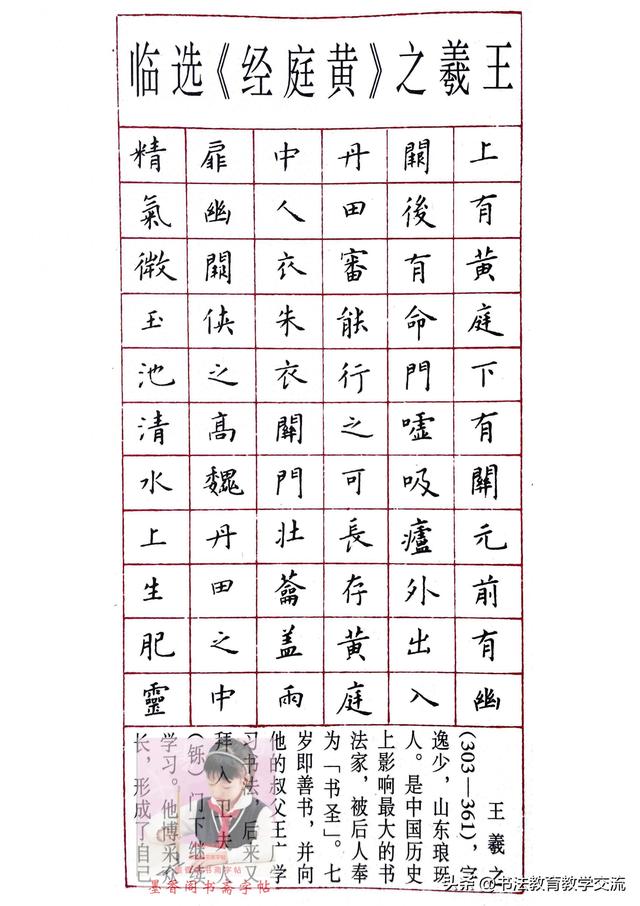 王羲之《黄庭经》选临
上有黄庭下有關元前有幽
闕後有命門嘘吸廬外出入
丹田審能行之可長存黄庭
中人衣朱衣關門壮蘥盖兩
扉幽闕侠之高魏丹田之中
精氣微玉池清水上生肥靈
王羲之
(303—361)，字
逸少，山东琅玡
人。是中国历史
上影响最大的书
法家，被后人奉
为「书圣」。七
岁即善书，并向
他的叔父王广学
习书法，后来又
拜入卫夫人
(铄)门下继续
学习。他博采众
长，形成了自己
墨香阁书斋字帖
头条 @书法教育教学交流